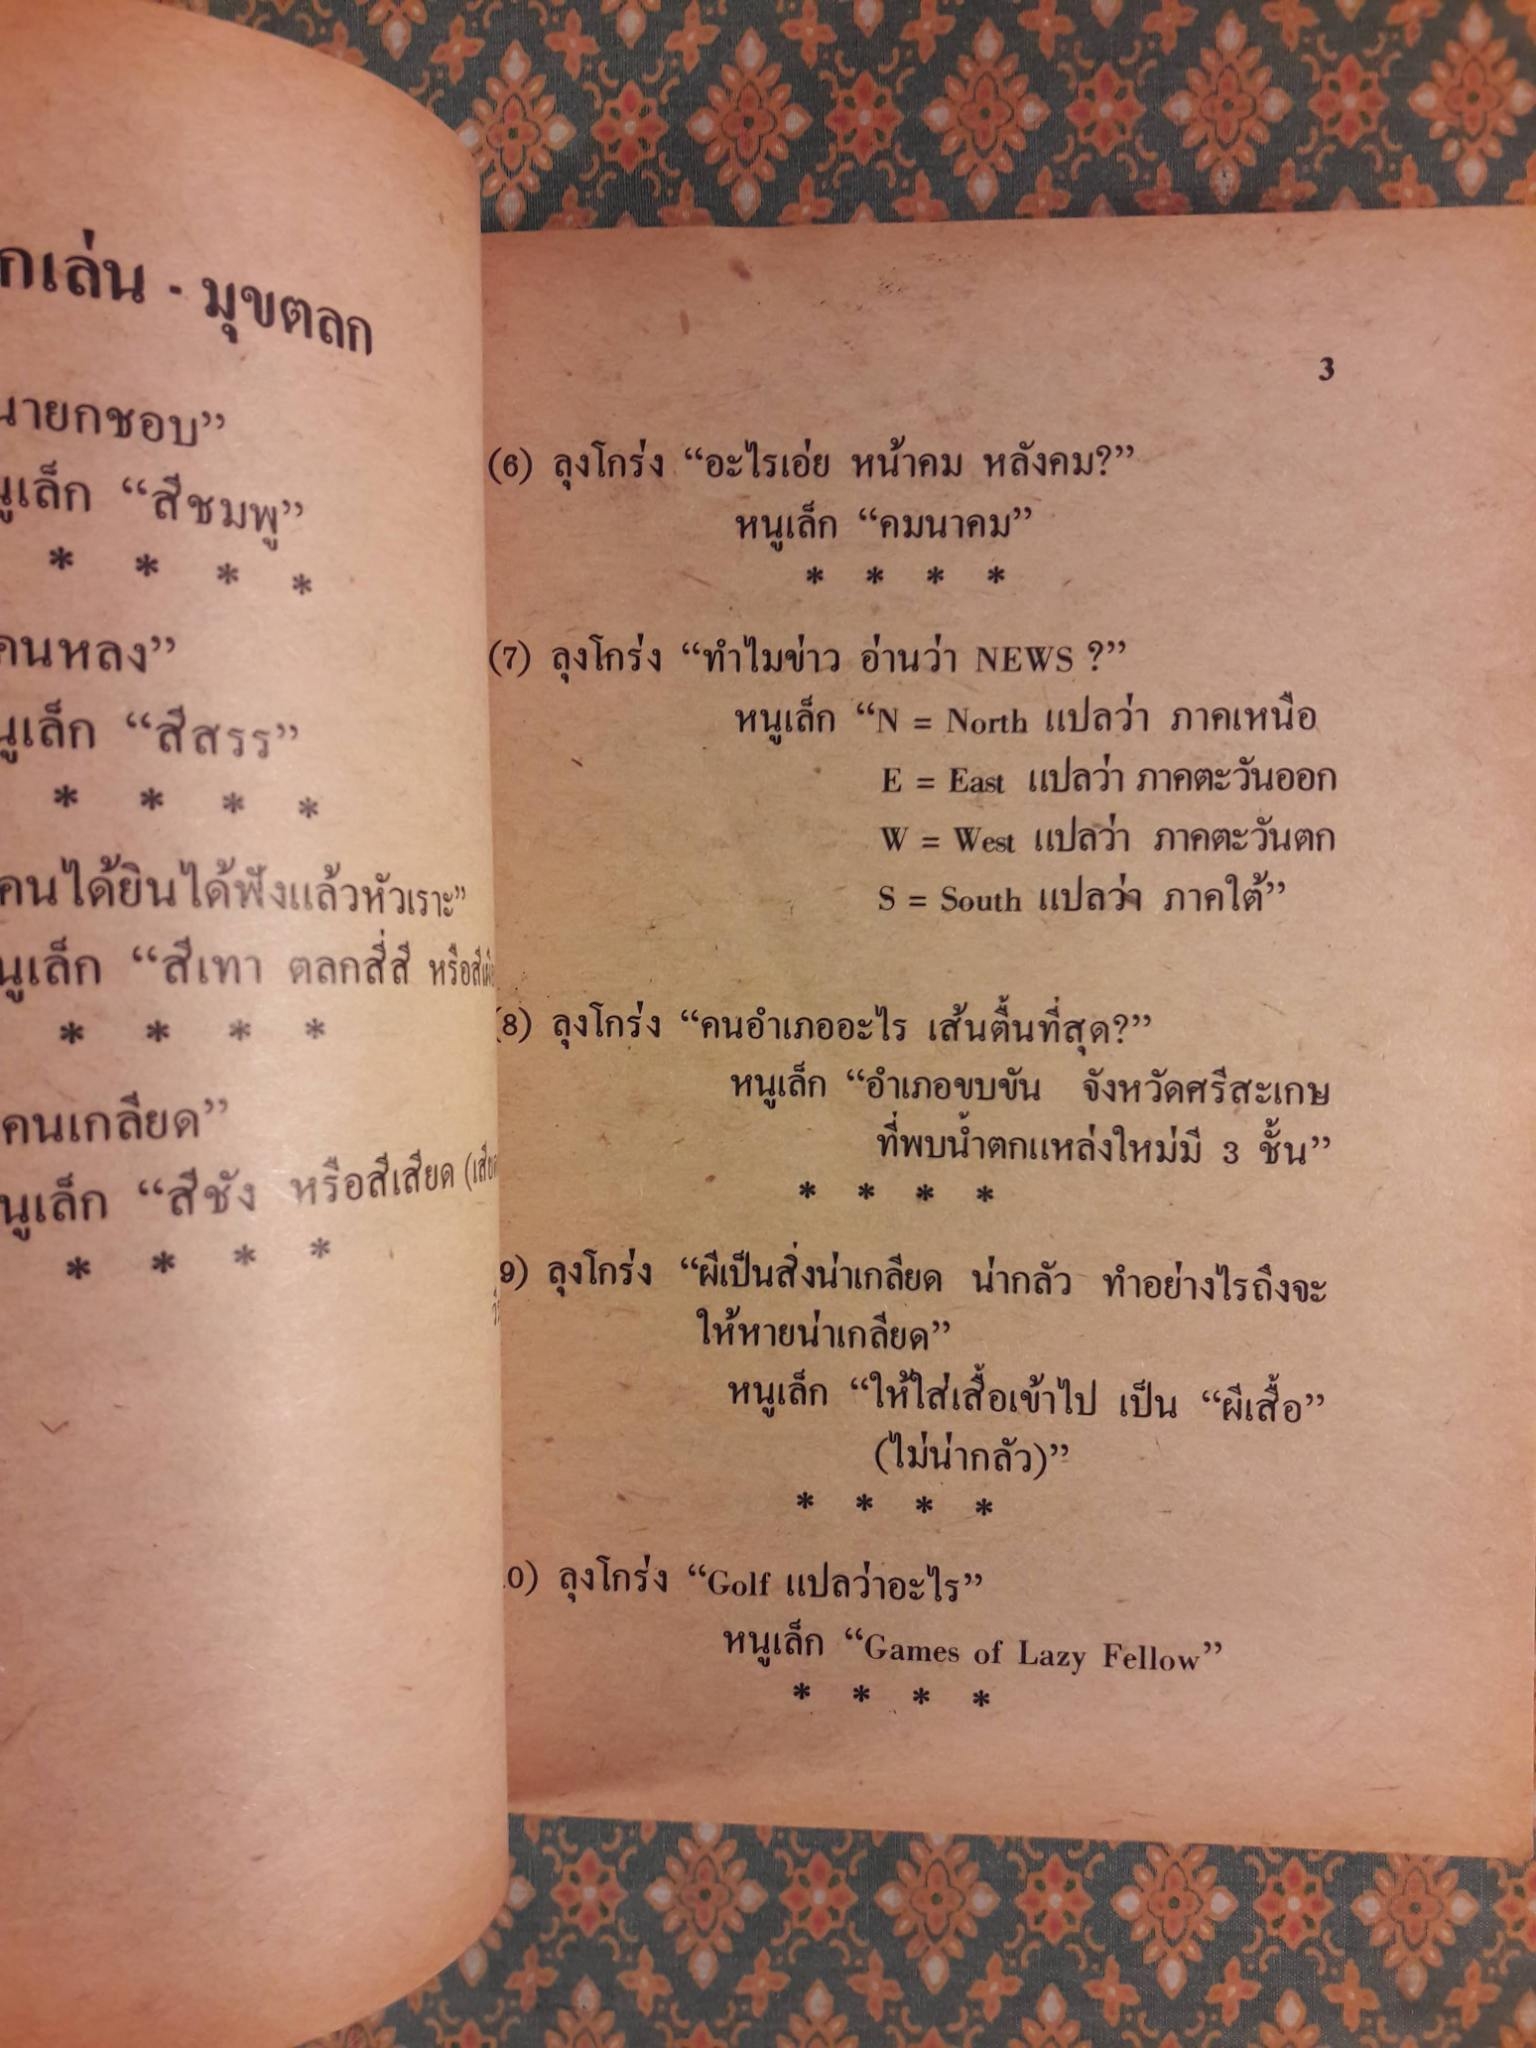 กเล่น - มุขตลก
นายกชอบ”
นูเล็ก “สีชมพู”
* * * *
คนหลง”
นูเล็ก “สีสรร”
* * * *
คนได้ยินได้ฟังแล้วหัวเราะ”
นูเล็ก “สีเทา ตลกสี่สี
* * * *
คนเกลียด”
นูเล็ก “สีชัง หรือสีเสียด
* * * *
3
(6) ลุงโกร่ง “อะไรเอ่ย หน้าคม หลังคม?”
หนูเล็ก “คมนาคม”
* * * *
(7) ลุงโกร่ง “ทำไมข่าว อ่านว่า NEWS ?”
หนูเล็ก “N = North แปลว่า ภาคเหนือ
E = East แปลว่า ภาคตะวันออก
W = West แปลว่า ภาคตะวันตก
S = South แปลว่า ภาคใต้”
(8) ลุงโกร่ง “คนอำเภออะไร เส้นตื้นที่สุด?”
หนูเล็ก “อำเภอขบขัน จังหวัดศรีสะเกษ
ที่พบน้ำตกแหล่งใหม่มี 3 ชั้น”
* * * *
9) ลุงโกร่ง “ผีเป็นสิ่งน่าเกลียด น่ากลัว ทำอย่างไรถึงจะ
ให้หายน่าเกลียด”
หนูเล็ก “ให้ใส่เสื้อเข้าไป เป็น “ผีเสื้อ”
(ไม่น่ากลัว)”
* * * *
10) ลุงโกร่ง “Golf แปลว่าอะไร”
หนูเล็ก “Games of Lazy Fellow”
* * * *